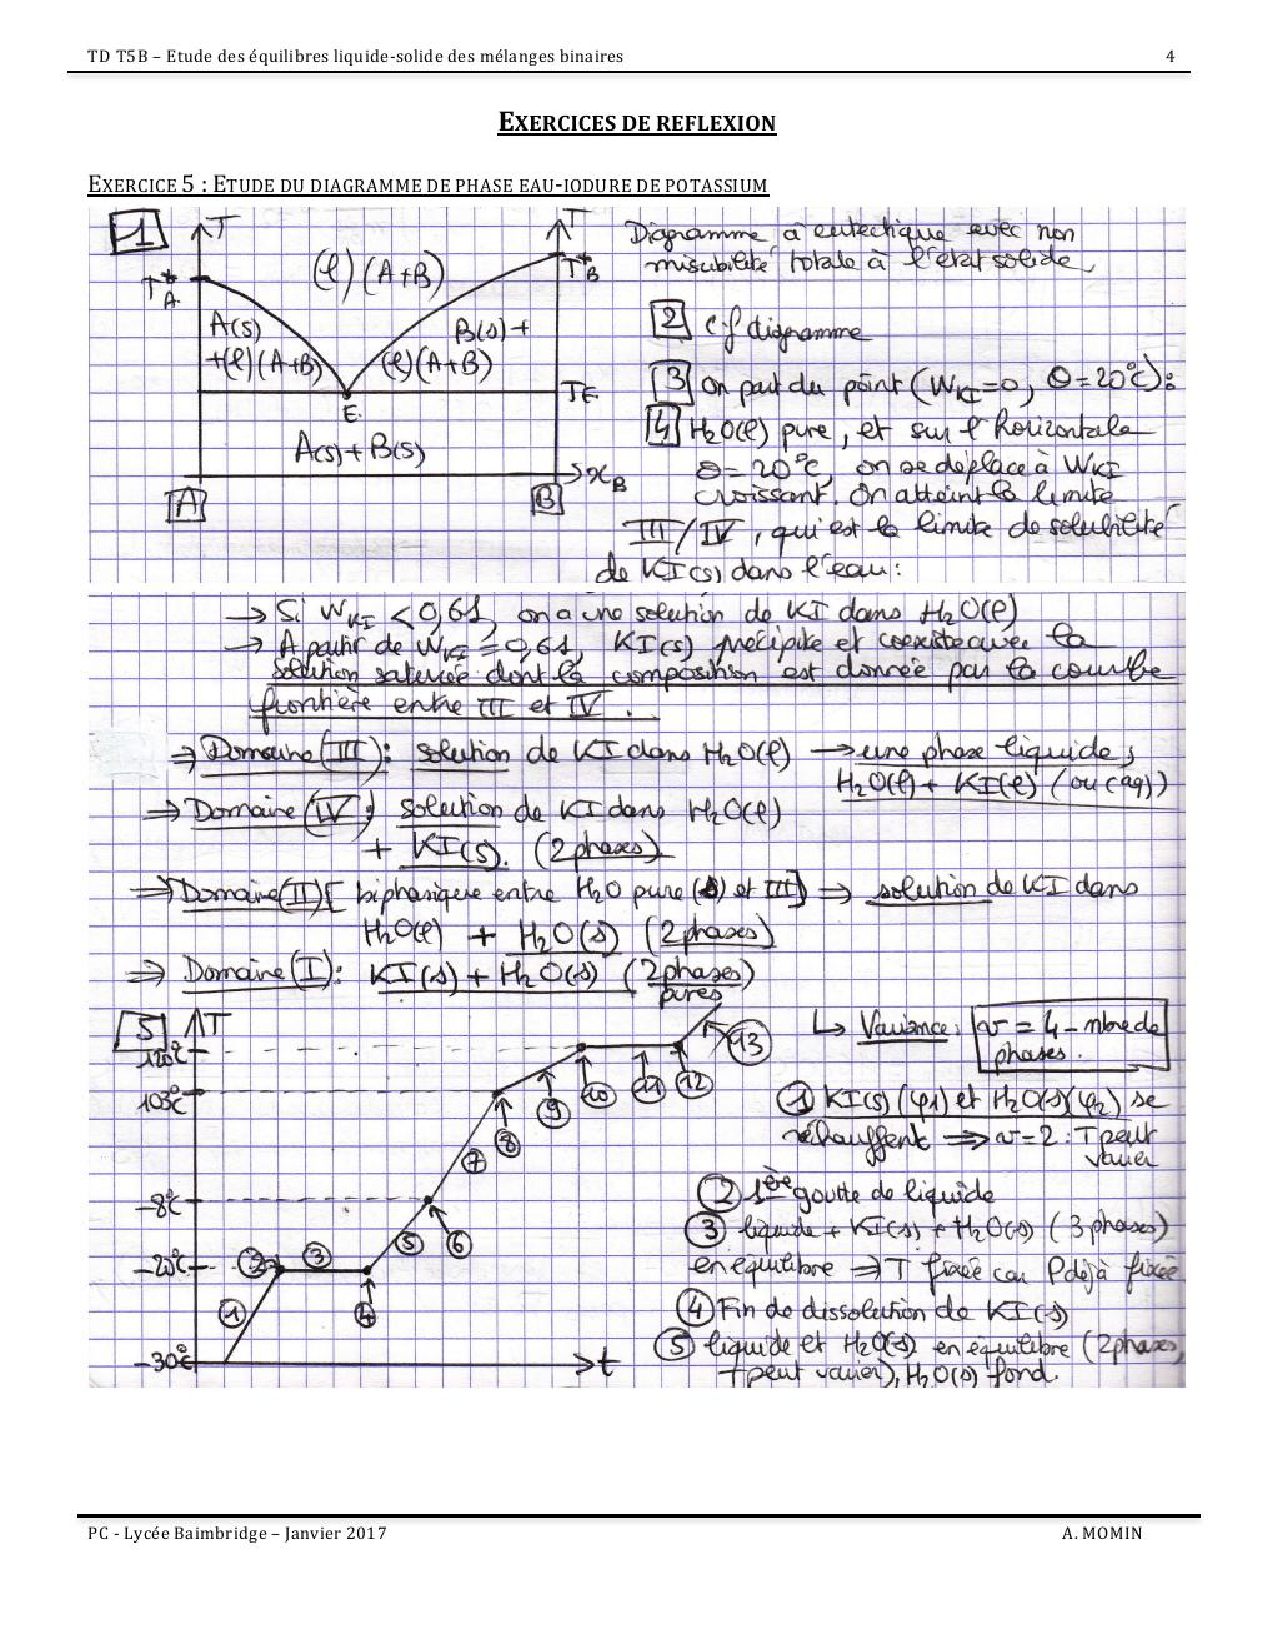 TD T5B – Etude des équilibres liquide-solide des mélanges binaires 4
EXERCICES DE REFLEXION
EXERCICE 5 : ETUDE DU DIAGRAMME DE PHASE EAU-IODURE DE POTASSIUM
1 T T
T*A T*B
(l) (A+B)
A(s) +(l)(A+B)
B(s)+ (l)(A+B)
TE
E
A(s)+B(s)
xB
A B
Diagramme à eutectique avec non
miscibilité totale à l'état solide.
2 c.f diagramme
3 On part du point (WKI=0, θ=20°C):
4 H2O(l) pure, et sur l'horizontale
θ=20°C, on se déplace à WKI
croissant. On atteint la limite
III/IV, qui est la limite de solubilité
de KI(s) dans l'eau:
→ Si WKI < 0,61, on a une solution de KI dans H2O(l)
→ A partir de WKI = 0,61, KI(s) précipite et coexiste avec la
solution saturée dont la composition est donnée par la courbe
frontière entre III et IV.
⇒ Domaine (III): solution de KI dans H2O(l) → une phase liquide,
H2O(l)+ KI(l) (ou (aq))
⇒ Domaine (IV): solution de KI dans H2O(l)
+ KI(s). (2 phases)
⇒ Domaine (II) [biphasique entre H2O pure (s) et III] → solution de KI dans
H2O(l) + H2O(s) (2 phases)
⇒ Domaine (I): KI(s) + H2O(s) (2 phases)
pures
5 T
120°C
103°C
-8°C
-20°C
-30°C
t
1 2 3 4 5 6 7 8 9 10 11 12 13
↳ Variance: v = 4 - nbre de
phases.
1 KI(s) (φ1) et H2O(s)(φ2) se
réchauffent ⇒ v=2 : T peut
varier
2 1ère goutte de liquide
3 liquide + KI(s) + H2O(s) (3 phases)
en équilibre ⇒ T fixée car P déjà fixée
4 Fin de dissolution de KI(s)
5 liquide et H2O(s) en équilibre (2 phases,
T peut varier), H2O(s) fond.
PC - Lycée Baimbridge – Janvier 2017 A. MOMIN